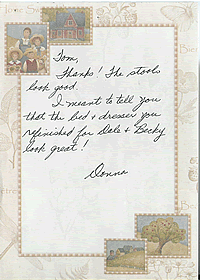 Tom,
Thanks! The stools
look good.
I meant to tell you
that the bed & dresser you
refinished for Dale & Becky
look great!
Donna